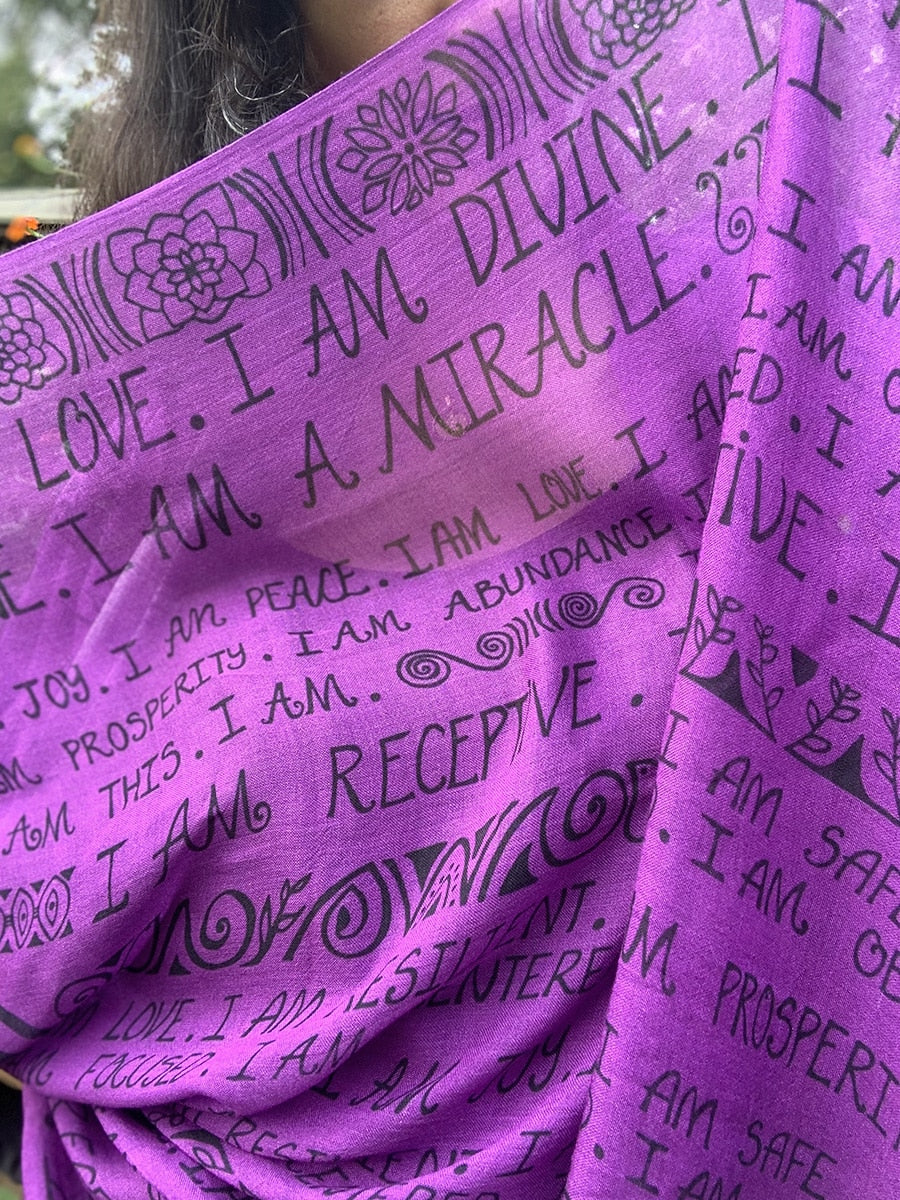 LOVE. I AM DIVINE. I
I AM A MIRACLE.
JOY. I AM PEACE. I AM LOVE. I AM
PROSPERITY. I AM ABUNDANCE.
AM THIS. I AM.
I AM RECEPTIVE.
LOVE. I AM RESILIENT.
FOCUSED. I AM CENTERE
I AM JOY. I
RESILIENT. I
I AM
I AM
ED. I
IVE. I
I AM SAFE
I AM
AM PROSPERI
I AM SAFE
I AM